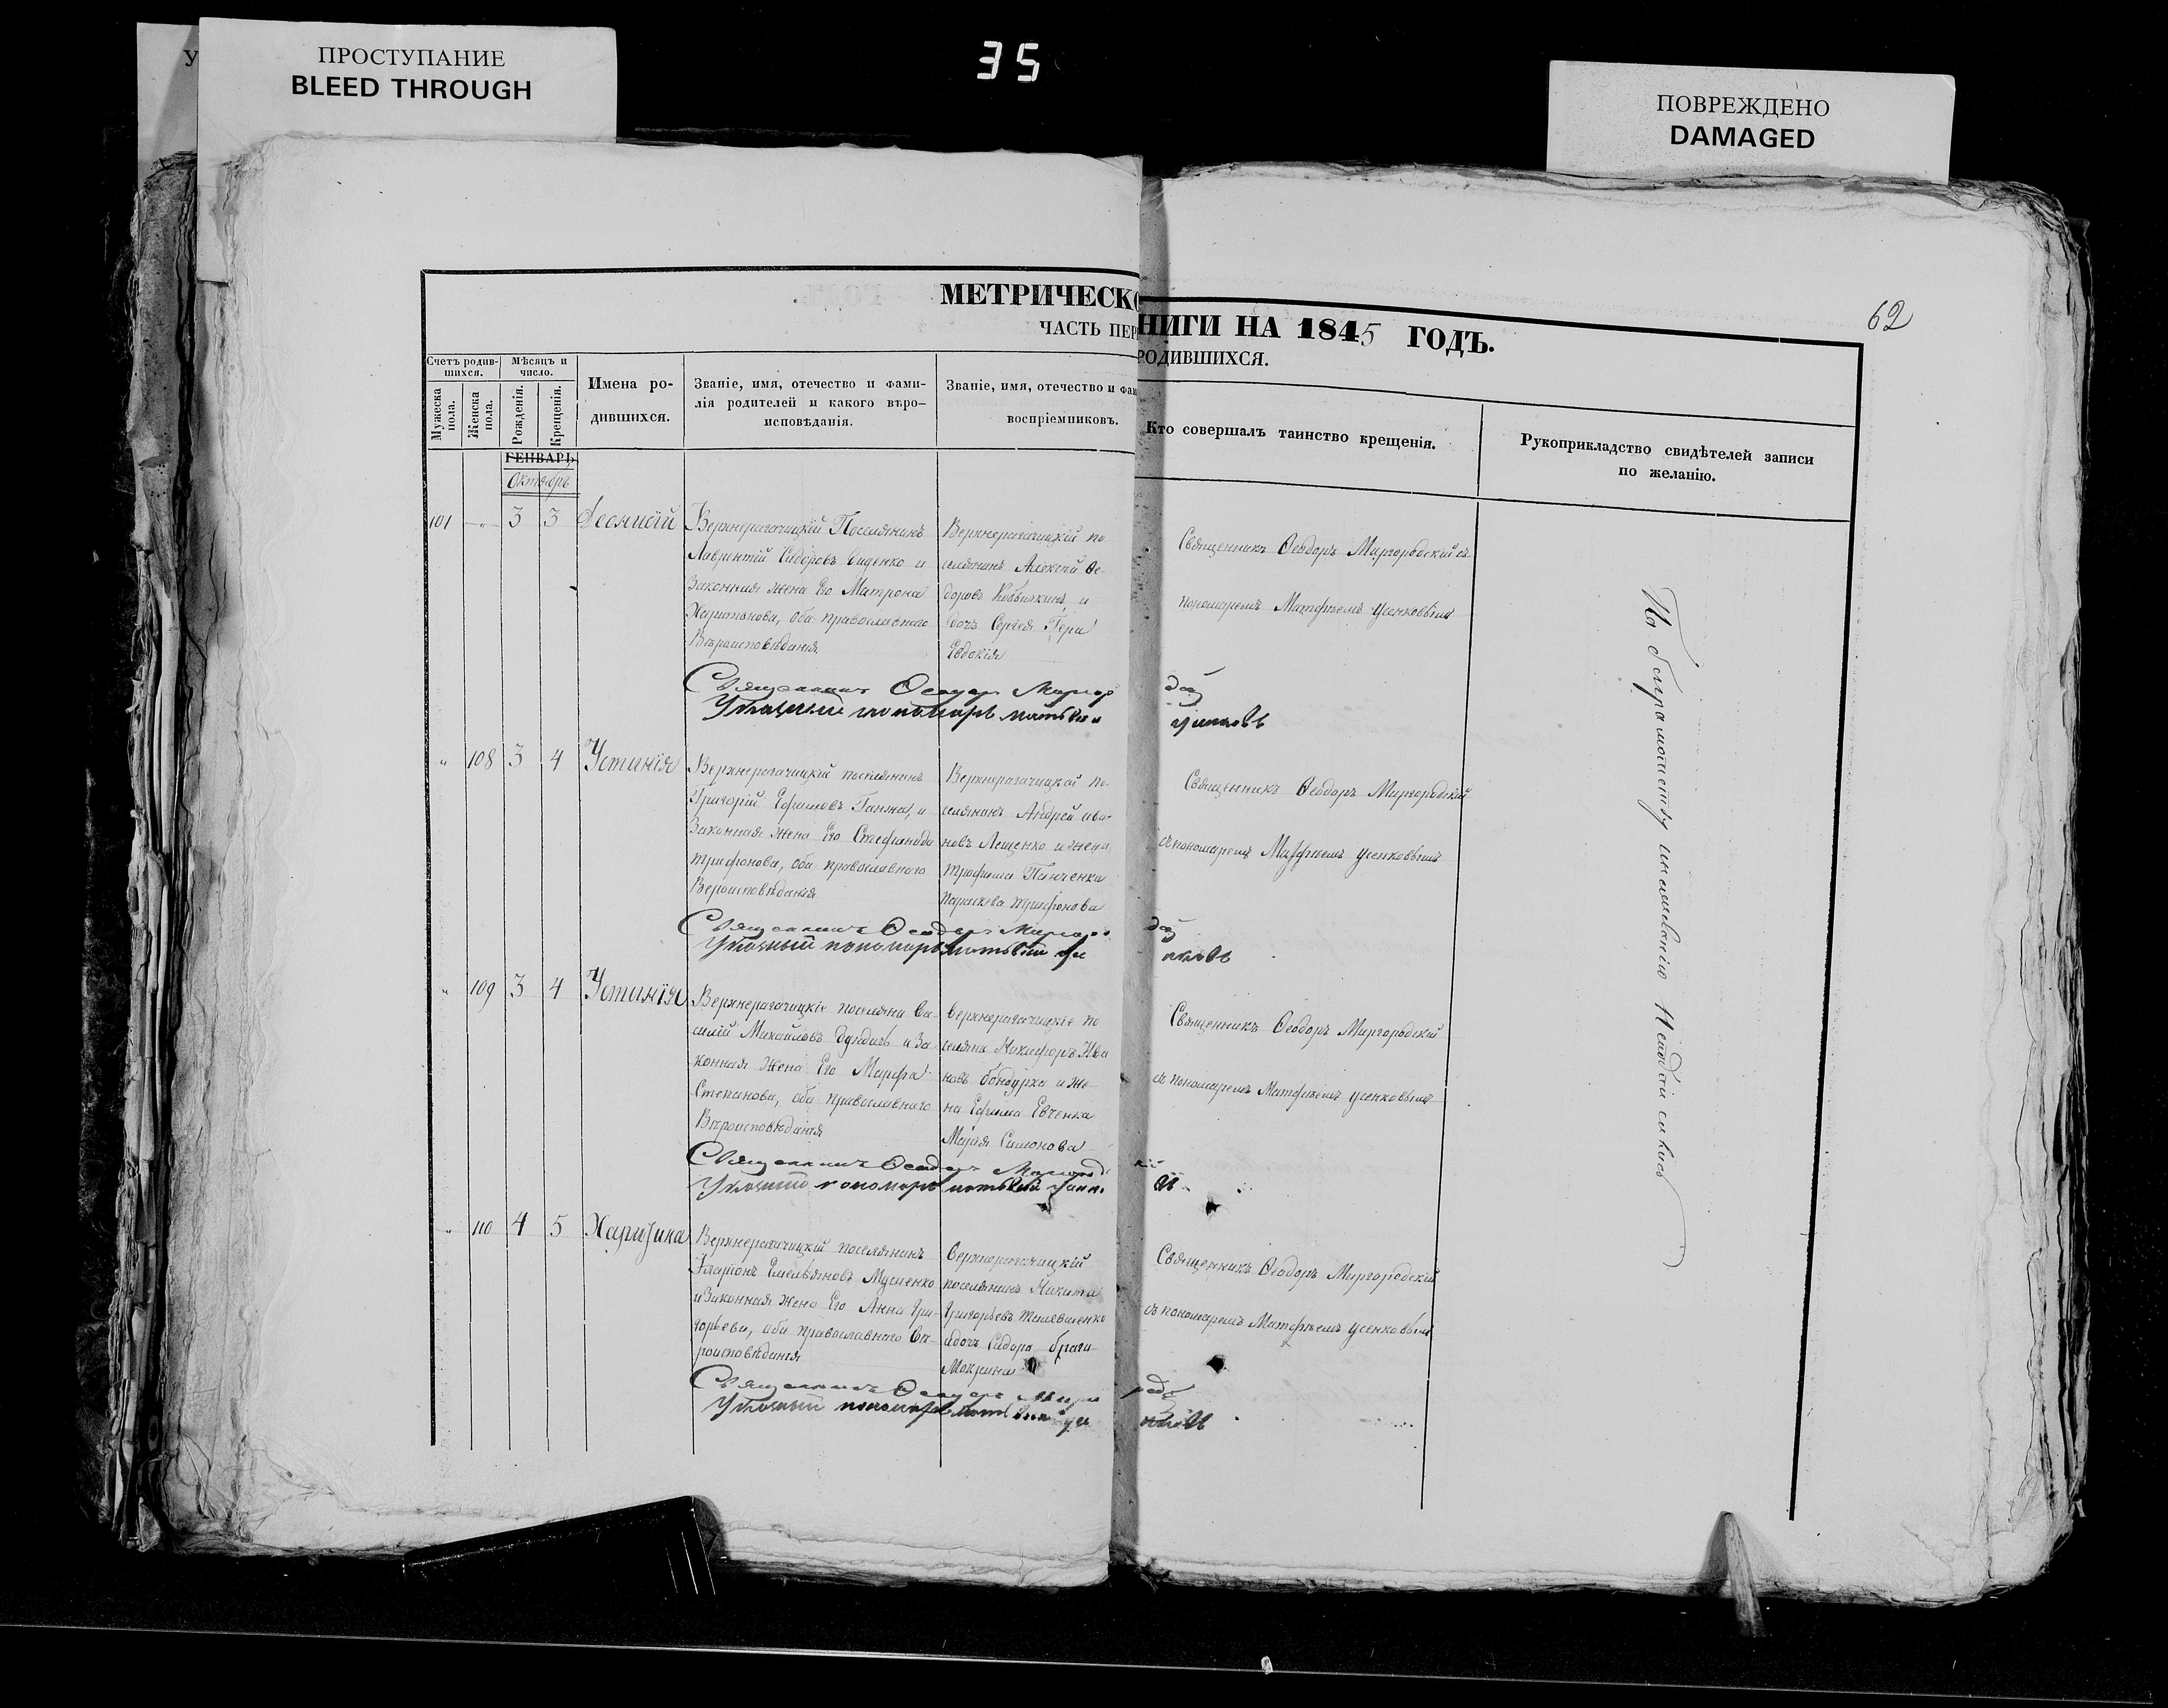 У
ПРОСТУПАНИЕ
BLEED THROUGH
35
ПОВРЕЖДЕНО
DAMAGED
62
МЕТРИЧЕСКО
НИГИ НА 1845 ГОДЪ.
ЧАСТЬ ПЕР
РОДИВШИХСЯ.
Счетъ родив-
шихся.
Мѣсяцъ и
число.
Мужеска
пола.
Женска
пола.
Рожденія.
Крещенія.
Имена ро-
дившихся.
Званіе, имя, отечество и фами-
лія родителей и какого вѣро-
исповѣданія.
Званіе, имя, отечество и фам
воспріемниковъ.
Кто совершалъ таинство крещенія.
Рукоприкладство свидѣтелей записи
по желанію.
ГЕНВАРЬ
Октябрь
101 " 3 3
Верхнерагачицкій Поселянинъ
Лаврентій Сидоровъ и
Законная жена Его Матрона
Харитонова, оба православнаго
Вѣроисповѣданія
Верхнерагачицкій по
селянинъ Алексѣй Ѳе-
доровъ и
дочь Сергея
Евдокія
Священникъ Ѳеодоръ Миргородскій съ
пономаремъ Матфѣемъ Усенковымъ
Священникъ Ѳеодоръ Миргор
Указный пономарь
" 108 3 4 Устинія
Верхнерагачицкій поселянинъ
Григорій Ефимовъ Ганжа, и
Законная жена Его Стефанида
Трифонова, оба православнаго
Вероисповѣданія
Верхнерагачицкой по-
селянинъ Андрей Ива-
новъ Лещенко и жена
Трофима Панченка
Параскева Трифонова
Священникъ Ѳеодоръ Миргородскій
съ пономаремъ Матфѣемъ Усенковымъ
Священникъ Ѳеодоръ Мирго
Указный пономарь
" 109 3 4 Устинія
Верхнерагачицкіе поселяне Ва-
силій Михайловъ и За-
конная Жена Его Марфа
Степанова, оба православнаго
Вѣроисповѣданія
Верхнерагачицкіе по
селяне Никифоръ Ива
новъ Бондурка и же-
на Ефима Евченка
Марія Симонова
Священникъ Ѳеодоръ Миргородскій
съ пономаремъ Матфѣемъ Усенковымъ
Священникъ Ѳеодоръ
Указный пономарь
" 110 4 5 Харитина
Верхнерагачицкій поселянинъ
Иларіонъ Емельяновъ Мусіенко
и Законная жена Его Анна Гри-
горьева, оба православнаго Вѣ-
роисповѣданія
Верхнерагачицкій
поселянинъ Никита
Григорьевъ
и дочь Сидора Браги
Мокрина
Священникъ Ѳеодоръ Миргородскій
съ пономаремъ Матфѣемъ Усенковымъ
Священникъ Ѳеодоръ
Указный пономарь